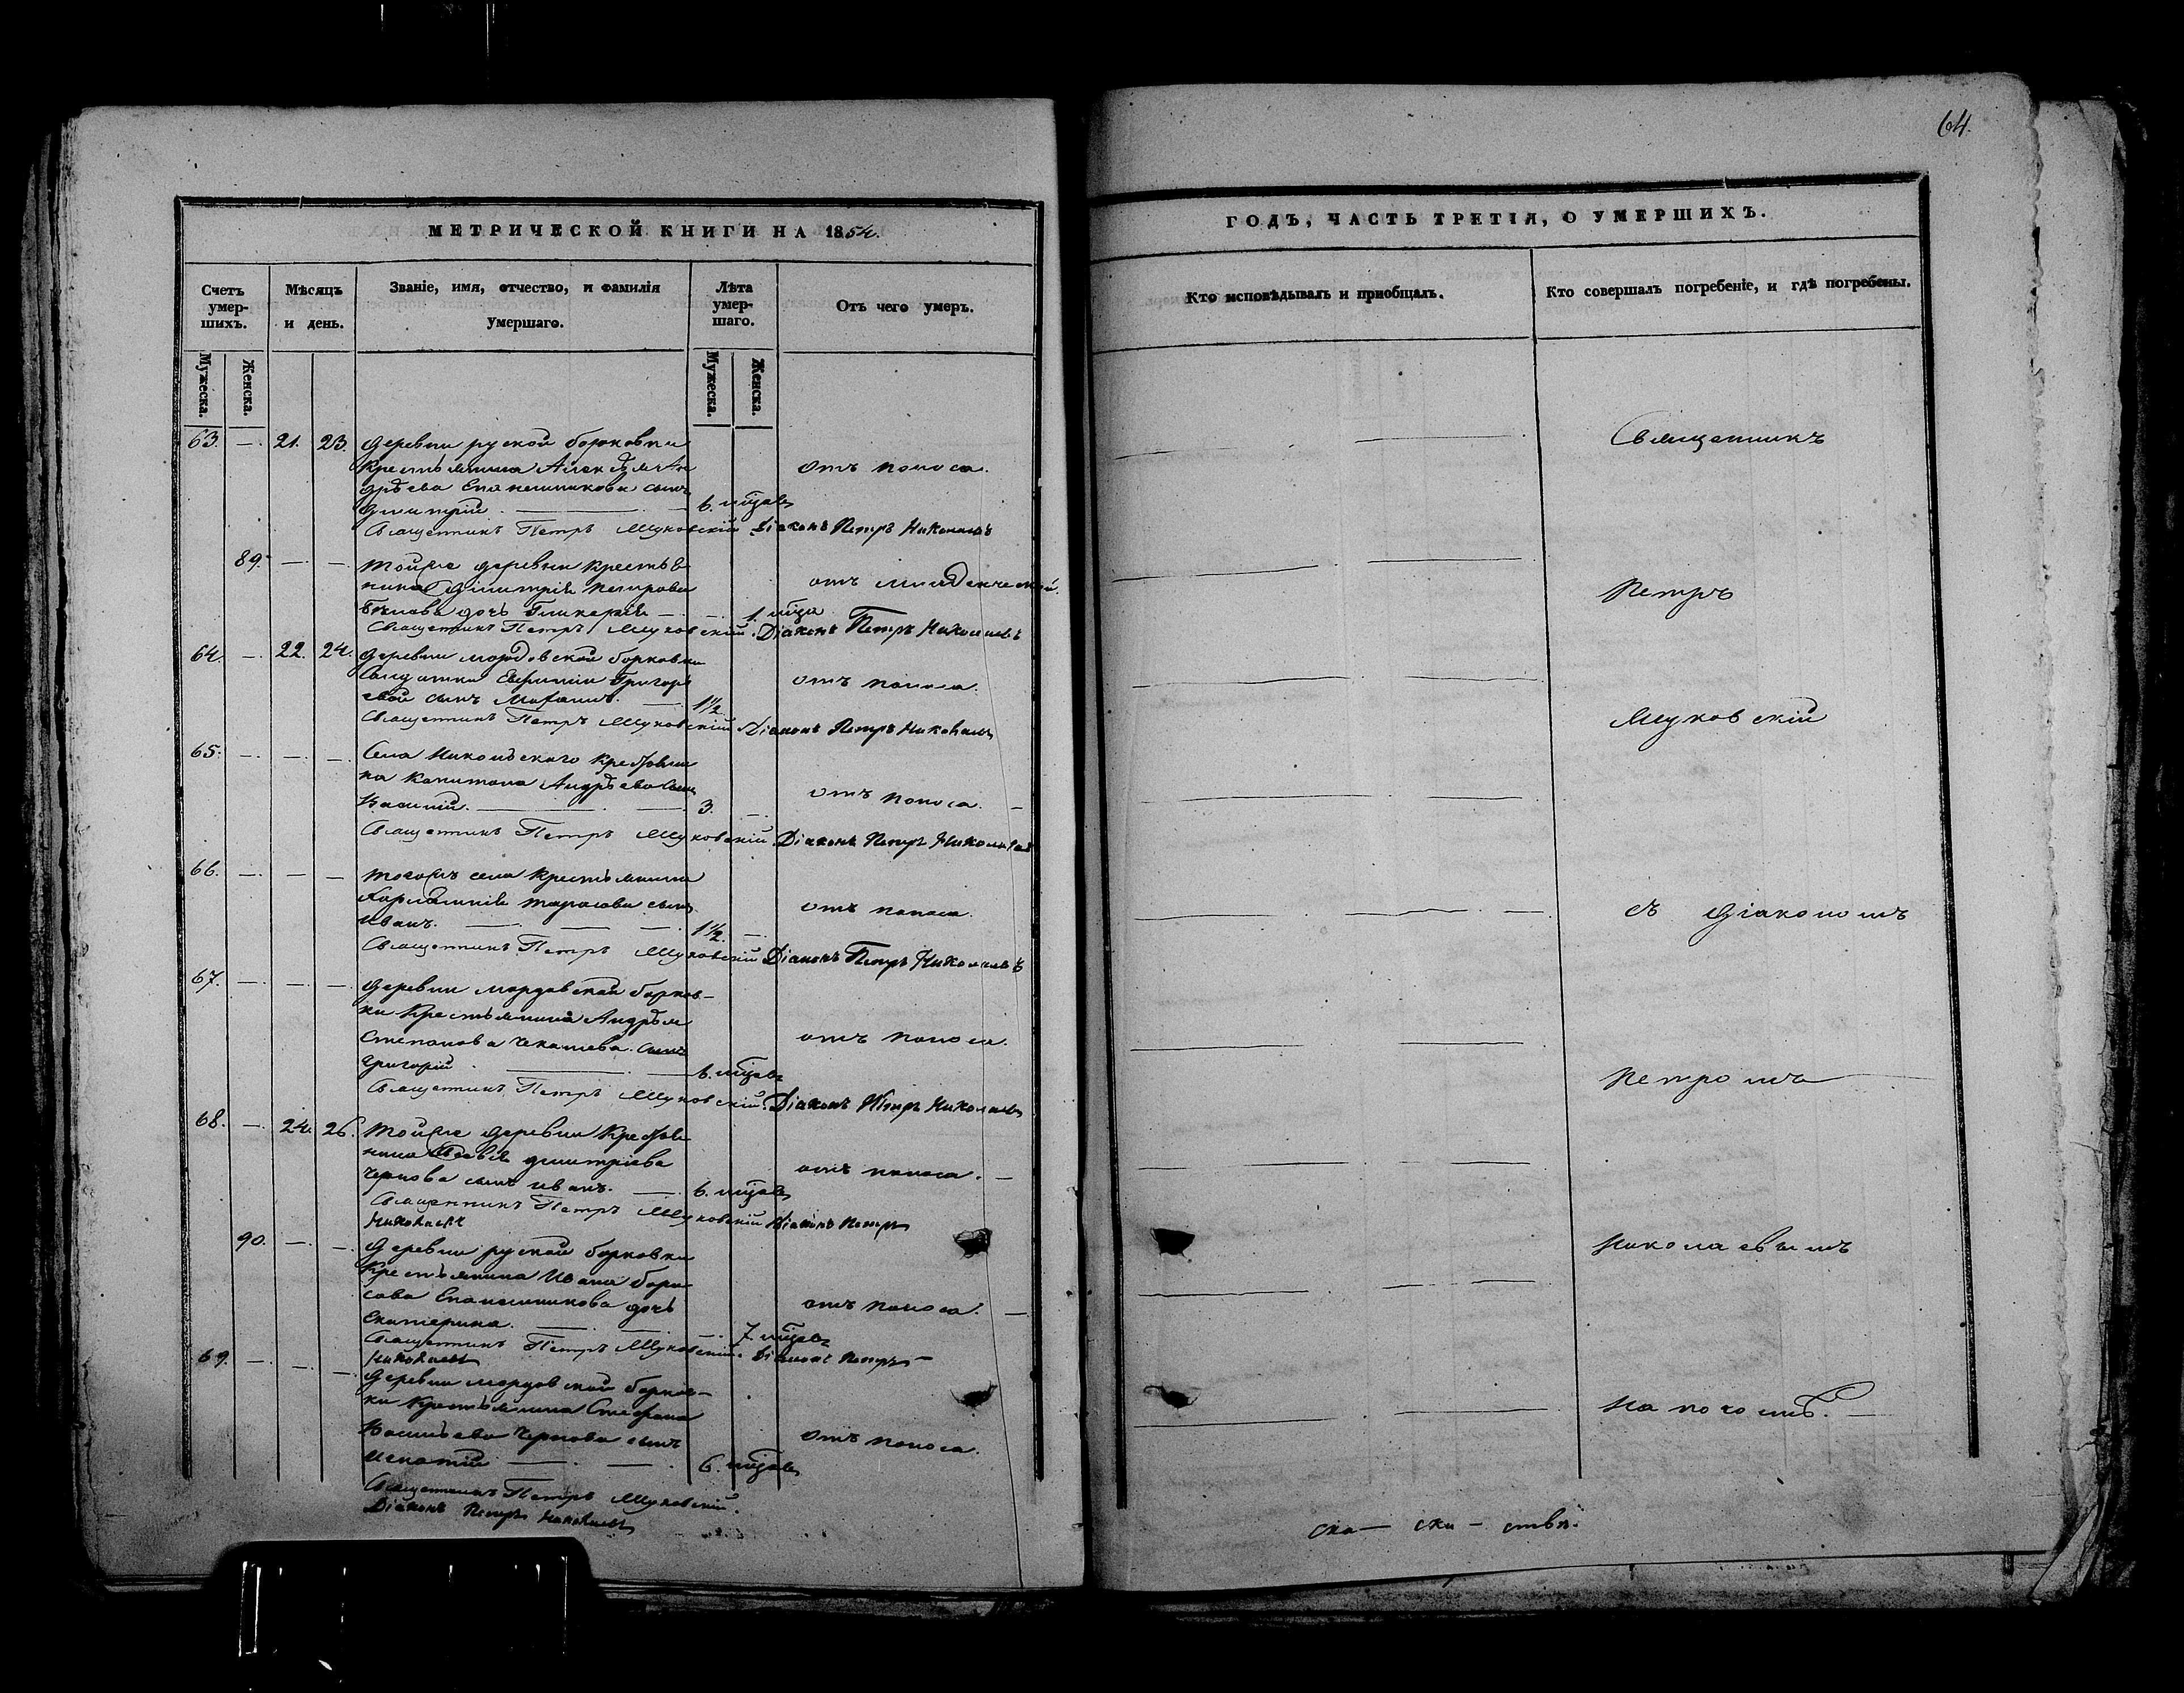 64.
МЕТРИЧЕСКОЙ КНИГИ НА 1854.
Счетъ умершихъ.
Мѣсяцъ и день.
Званіе, имя, отчество, и фамилія Умершаго.
Лѣта умершаго.
Отъ чего умеръ.
Мужеска.
Женска.
Мужеска.
Женска.
63. — 21. 23. деревни руской борковки
крестьянина
сынъ
отъ поноса.
Дмитрій — 6. мцов
Священникъ Петръ Муковскій Діаконъ Петръ Николаевъ
89. — — тойже деревни крестья
нина Димитрія Петрова
отъ младенческой.
дочь Гликерія — 1. мца
Священникъ Петръ Муковскій. Діаконъ Петръ Николаевъ
64. — 22. 24. деревни мордовской борковки
Солдатки Евфиміи Григорь
отъ поноса.
евой сынъ — 1½
Священникъ Петръ Муковскій Діаконъ Петръ Николаевъ
65. — — — Села Никольскаго
на Капитона Андрѣева сынъ
отъ поноса. —
Василій. — 3. —
Священникъ Петръ Муковскій Діаконъ Петръ Николаевъ
66. — — — тогожъ села крестьянина
Харлампія Тарасова сынъ
отъ поноса.
Иванъ. — — — 1½. —
Священникъ Петръ Муковскій Діаконъ Петръ Николаевъ
67. — — — деревни мордовской борков-
ки крестьянина Андрѣя
Степанова сынъ
отъ поноса.
Григорій — 6. мцовъ
Священникъ Петръ Муковскій. Діаконъ Петръ Николаевъ
68. — 24. 26. тойже деревни
нина Дмитріева
отъ поноса. —
Чернова сынъ Иванъ. — 6. мцовъ
Священникъ Петръ Муковскій Діаконъ Петръ
Николаевъ
90. — — деревни руской борковки
крестьянина Ивана Бори
сова дочь
отъ поноса. —
Екатерина. — — 7. мцовъ
Священникъ Петръ Муковскій. Діаконъ Петръ
Николаевъ
69. — — — деревни мордовской борков-
ки крестьянина Стефана
Васильева Чернова сынъ
отъ поноса.
Игнатій — — 6. мцовъ
Священникъ Петръ Муковскій.
Діаконъ Петръ Николаевъ
ГОДЪ, ЧАСТЬ ТРЕТІЯ, О УМЕРШИХЪ.
Кто исповѣдывалъ и пріобщалъ.
Кто совершалъ погребеніе, и гдѣ погребены.
Священникъ
Петръ
Муковскій
съ діакономъ
Петромъ
Николаевымъ
на погостѣ. —
ска — ски — ства.